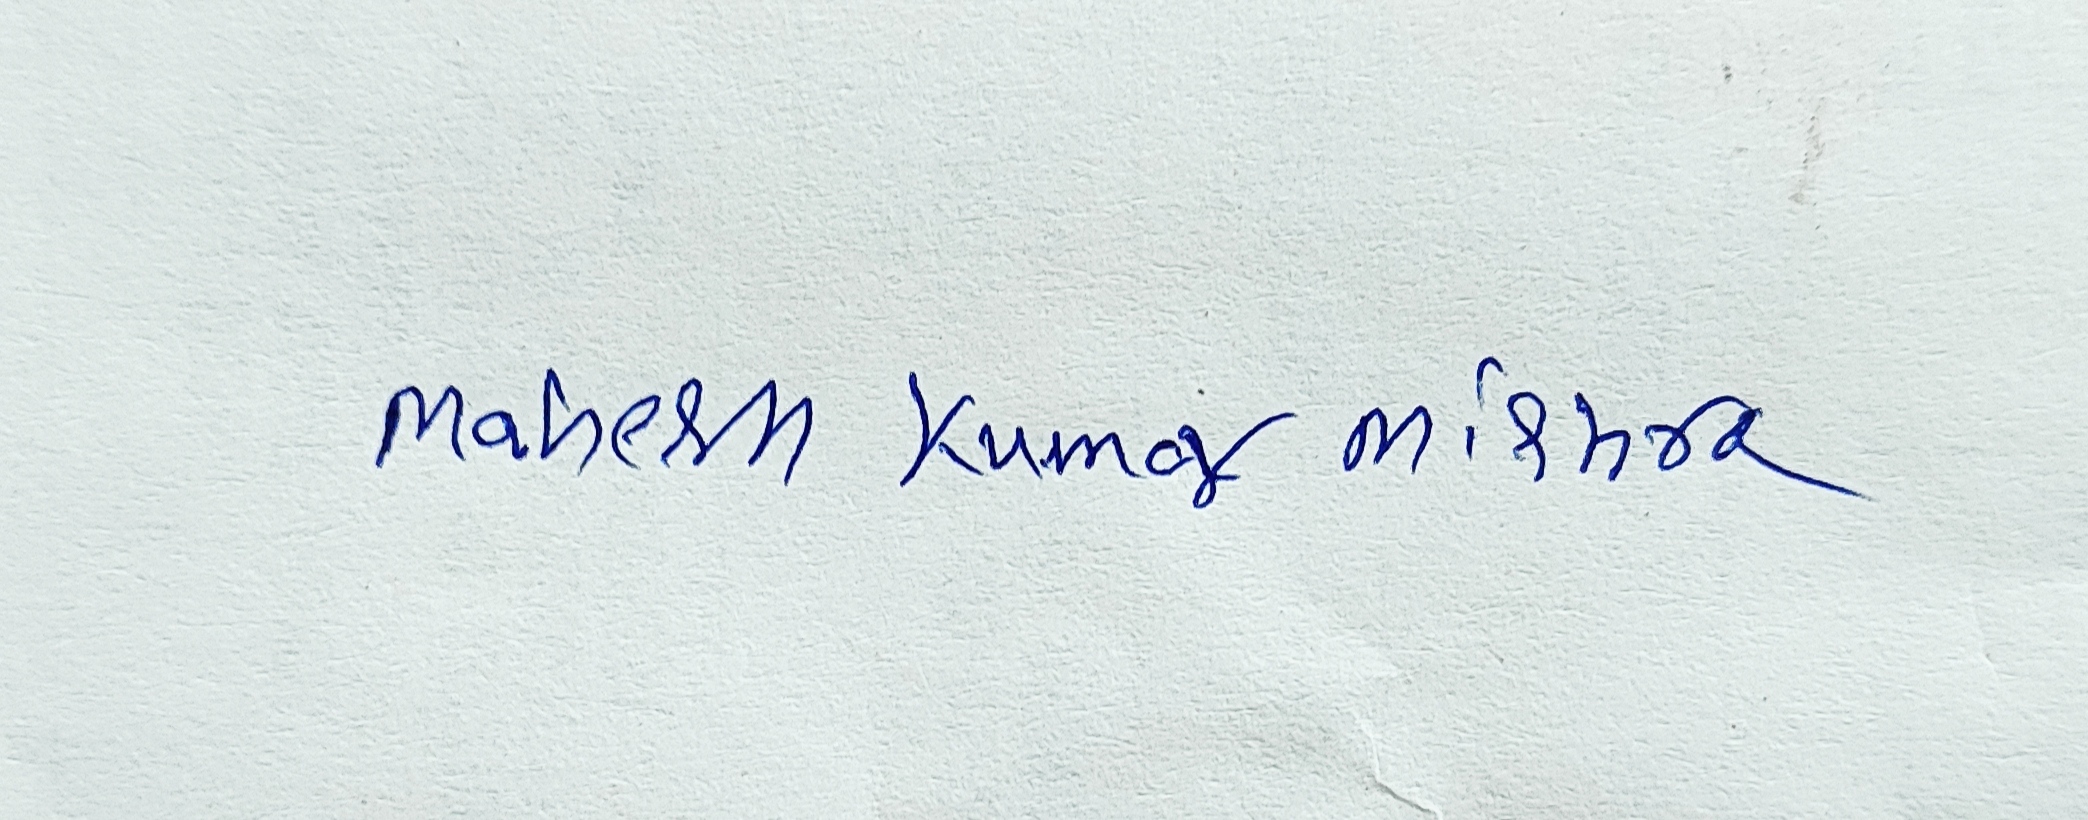 Mahesh Kumar Mishra